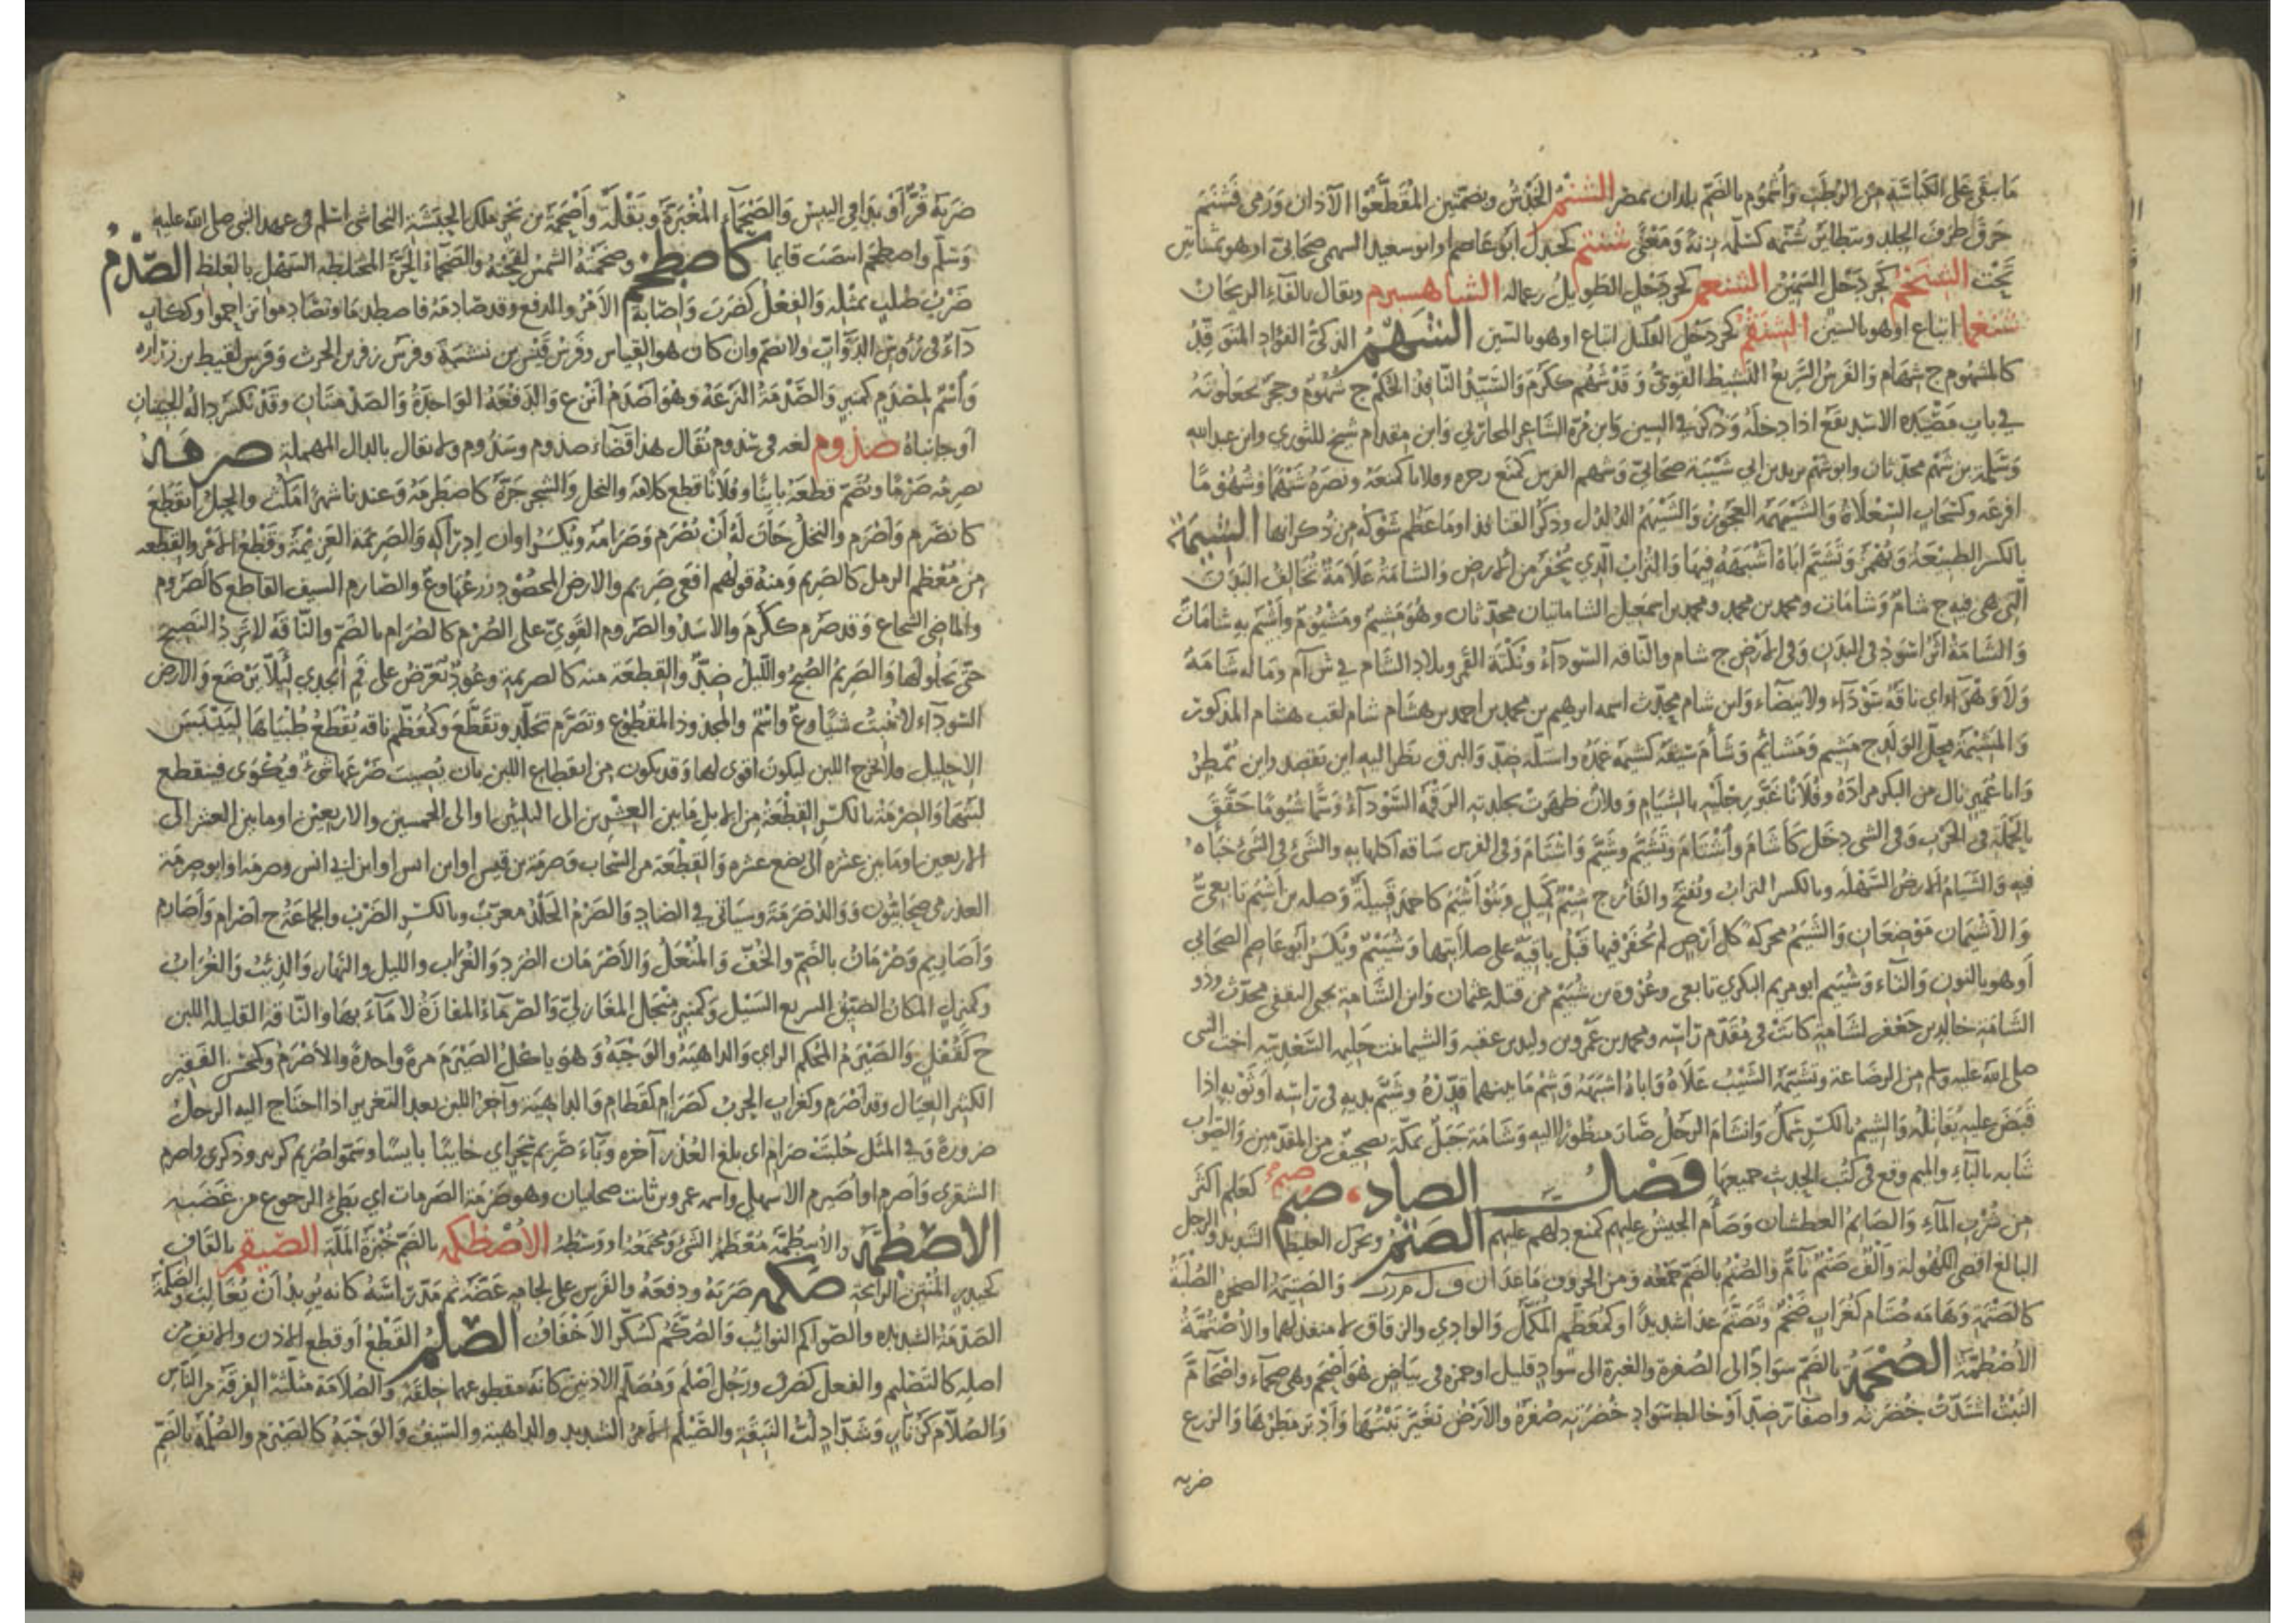 ما بقي على الكباسة من الرطب وأشموم بالضم بلدان بمصر الشنم الخدش وبضمتين المقطعوا الآذان ورمى فشنم
خرق طرف الجلد شنتم كجندل أبو عاصم او ابن سعيد السهمي صحابي او هو بمثناتين
تحت الشنخم كجردحل السمين الشنعم كجردحل الطويل الشاهسبرم ويقال بالفاء الريحان
شنغما اتباع او هو بالسين الشنقم كجردحل القليل اتباع او هو بالسين الشهم الذكي الفؤاد المتوقد
كالمشهوم ج شهام والفرس السريع النشيط القوي وقد شهم ككرم والسيد النافذ الحكم ج شهوم وحجر يجعلونه
في باب مصيدة الاسد يقع اذا دخله وذكر في السين وابن مرة الشاعر المحاربي وابن مقدام شيخ للثوري وابن عبد الله
وسلمة بن شهم محدثان وابو شهم يزيد بن ابي شيبة صحابي وشهم الفرس كمنع زجره وفلانا كمنعه ونصره شهما وشهوما
افزعه وكسحاب السعلاة والشيهمة العجوز والشيهم الدلدل وذكر القنافذ او ما عظم شوكه من ذكرانها الشيمة
بالكسر الطبيعة وتهمز وتشيم اباه اشبهه فيها والتراب الذي يحفر من الارض والشامة علامة تخالف البدن
التي هي فيه ج شام وشامات ومحمد بن محمد ومحمد بن اسمعيل الشاماتيان محدثان وهو مشيم ومشيوم وأشيم به شامات
والشامة اثر اسود في البدن وفي الارض ج شام والناقة السوداء ونكتة القمر وبلاد الشام في ش أ م وما له شامة
ولا زهراء اي ناقة سوداء ولا بيضاء وابن شام محدث اسمه ابرهيم بن محمد بن احمد بن هشام شام لقب هشام المذكور
والمشيمة محل الولد ج مشيم ومشائم وشام سيفه كشيمه غمده واستله ضد والبرق نظر اليه اين يقصد واين تمطر
وابا عمير نال من البكر مراده وفلانا غبر رجليه بالشيام وفلان ظهرت بجلدته الرقمة السوداء وشما شيوما حقق
الحملة في الحرب وفي الشي دخل كأشام وأشتام وتشيم وشيم وانشام وفي الفرس ساقه والشئ في الشئ خباه
فيه والشيام الارض السهلة وبالكسر التراب ويفتح والفأر ج شيم كميل وبنو أشيم كاحمد قبيلة وصلة بن اشيم تابعي
والاشيمان موضعان والشيم محركة كل ارض لم يحفر فيها قبل باقية على صلابتها وشييم ويكسر ابو عاصم الصحابي
أو هو بالنون والتاء وشييم ابو مريم البكري تابعي وعروة بن شييم من قتلة عثمان وابن الشامة يحيى الثقفي محدث وذو
الشامة خالد بن جعفر لشامة كانت في مقدم راسه ومحمد بن عمرو بن وليد بن عقبة والشيما بنت حليمة السعدية اخت النبي
صلى الله عليه وسلم من الرضاعة وتشيمه الشيب علاه واباه اشبهه وشم ما بينهما قدره وشيم يديه في راسه او ثوبه اذا
قبض عليه يقاتله والشيم بالكسر سمك وانشام الرجل صار منظورا اليه وشامة جبل بمكة تصحيف من المتقدمين والصواب
شابة بالباء والميم وقع في كتب الحديث جميعها فصل الصاد صئم كعلم اكثر
من شرب الماء والصائم العطشان وصأم الجيش عليهم كمنع دلهم عليهم الصتم ويحرك الغليظ الشديد والرجل
البالغ اقصى الكهولة وألف صتم تام والصتم بالضم جمعه ومن الحروف ما عدا ن ف ل م ر ب والصتيمة الصخرة الصلبة
كالصتمة وهامة صتام كغراب ضخم وتصتم عدا شديدا وكمعظم المكمل والوادي والزقاق لا منفذ لهما والاصتمة
الأصطمة الصحمة بالضم سواد الى الصفرة والغبرة الى سواد قليل او حمرة في بياض هو أصحم وهي صحماء واصحام
النبت اشتدت خضرته واصفار ضد أو خالط سواد خضرته صفرة والأرض تغير نبتها وأدبر مطرها والزرع
ضربه
ضربه قر أو بدا في اليبس والصحماء المغبرة وبقلة وأصحمة بن بحر ملك الحبشة النجاشي اسلم في عهد النبي صلى الله عليه
وسلم واصطحم انتصب قايما كاصطخم وصخمته الشمس لفحته والصخماء الحرة المختلطة السهل بالغلظ الصدم
ضرب صلب بمثله والفعل كضرب وإصابة الأمر والدفع وقد صادمه فاصطدما وتصادموا تزاحموا وككتاب
داء في رؤس الدواب ولا يضم وان كان هو القياس وفرس قيس بن نشبة وفرس زفر بن الحرث وفرس لقيط بن زرارة
واسم لمصدم كمنبر والصدمة النزعة وهو أصدم أنزع والدفعة الواحدة والصدمتان وقد تكسر داله الجبينان
او جانباه صذوم لغة في سذوم يقال هذا قضاء صذوم وسذوم ولا يقال بالدال المهملة صرمه
يصرمه صرما ويضم قطعه باينا وفلانا قطع كلامه والنخل والشجر جزه كاصطرمه وعندنا شهرا مكث والحبل انقطع
كانصرم وأصرم والنخل حان له أن يصرم وصرامه ويكسر اوان إدراكه والصريمة العزيمة وقطع الامر والقطعة
من معظم الرمل كالصريم ومنه قولهم افعى صريم والارض المحصود زرعها وع والصارم السيف القاطع كالصروم
والماضي الشجاع وقد صرم ككرم والاسد والصروم القوي على الصرم كالصرام بالضم والناقة لا ترد النضيح
حتى يخلو لها والصريم الصبح والليل ضد والقطعة منه كالصريمة وعود يعرض على فم الجدي لئلا يرضع والارض
السوداء لا تنبت شيئا وع واسم والمجذوذ المقطوع وتصرم تجلد وتقطع وكمعظم ناقة يقطع طبياها لييبس
الإحليل ولا يخرج اللبن ليكون اقوى لها وقد يكون من انقطاع اللبن بان يصيب ضرعها شئ فيكوى فينقطع
لبنها والصرمة بالكسر القطعة من الابل ما بين العشرين الى الثلثين او الى الخمسين والاربعين او ما بين العشر الى
الاربعين او ما بين عشرة الى بضع عشرة والقطعة من السحاب وصرمة بن قيس او ابن انس او ابن ابي انس وصرمة او ابو صرمة
العذري صحابيون ووالد ضرمة وسياتي في الضاد والصرم الجلد معرب وبالكسر الضرب والجماعة ج أصرام وأصارم
وأصاريم وصرمان بالضم والخف المنعل والأصرمان الصرد والغراب والليل والنهار والذئب والغراب
وكمنزل المكان الضيق السريع السيل وكمنبر منجل المغازلي والصرماء المفازة لا ماء بها والناقة القليلة اللبن
ج كقفل والصيرم المحكم الراي والداهية والوجبة وهو ياكل الصيرم مرة واحدة والأصرم وكمحسن الفقير
الكثير العيال وقد أصرم وكغراب الحرب كصرام كقطام والداهية وآخر اللبن بعد التغزير اذا احتاج اليه الرجل
ضرورة وفي المثل حلبت صرام اى بلغ العذر آخره وجاء صريم سحر اي خايبا يايسا وسموا صريم كزبير وذكرى واصرم
الشقري وأصرم او أصيرم الاشهلي واسمه عمرو بن ثابت صحابيان وهو صرمة من الصرمات اي بطئ الرجوع من غضبه
الاصطمة والأسطمة معظم الشئ ومجتمعه او وسطه الأصطكمة بالضم خبزة الملة الصيقم بالقاف
كحيدر المنتن الرائحة صكمه ضربه ودفعه والفرس على لجامه عضه ثم مد راسه كانه يريد أن يغالب والصكمة
الصدمة الشديدة والصواكم النوائب والصكم كسكر الأخفاف الصلم القطع أو قطع الاذن والانف من
اصله كالتصليم والفعل كضرب ورجل أصلم ومصلم الاذنين كانه مقطوعهما خلقة والصلامة مثلثة الفرقة من الناس
والصلام كزنار وشداد لب النبقة والصيلم الامر الشديد والداهية والسيف والوجبة كالصيرم والصلمة بالضم